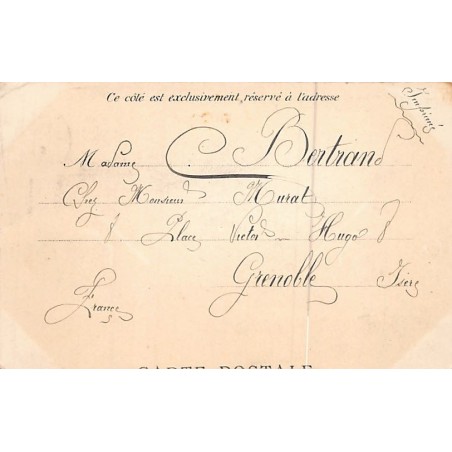 Ce côté est exclusivement réservé à l'adresse
Imprimés
Madame C. Bertrand
Chez Monsieur Murat
8 Place Victor Hugo 8
Grenoble Isère
France
CARTE POSTALE